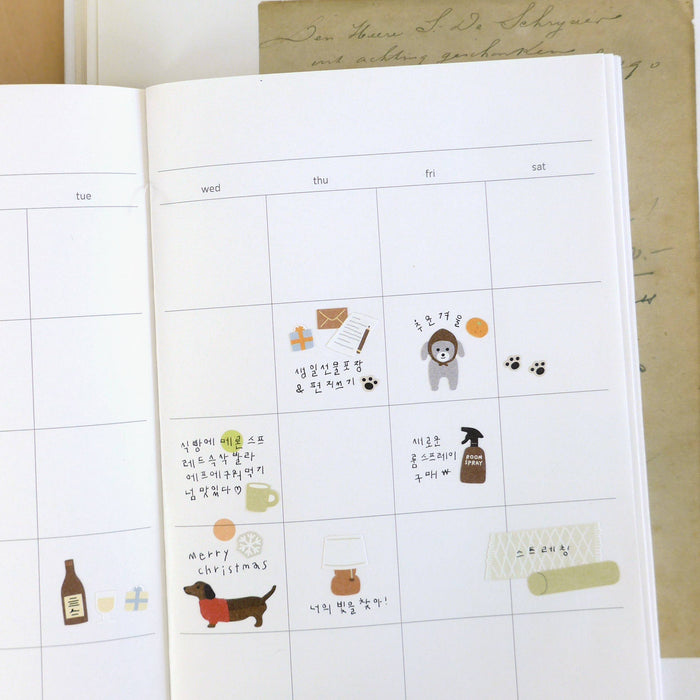 Den Heere De Schryver
met achting geschonken
tue
wed
thu
fri
sat
생일선물포장
& 편지쓰기
추운겨울
식빵에 메론 스프
레드 슥삭 발라
에프에 구워먹기
넘 맛있다♡
새로운
룸스프레이
구매 ₩
ROOM
SPRAY
merry
christmas
너의 빛을 찾아!
스트레칭